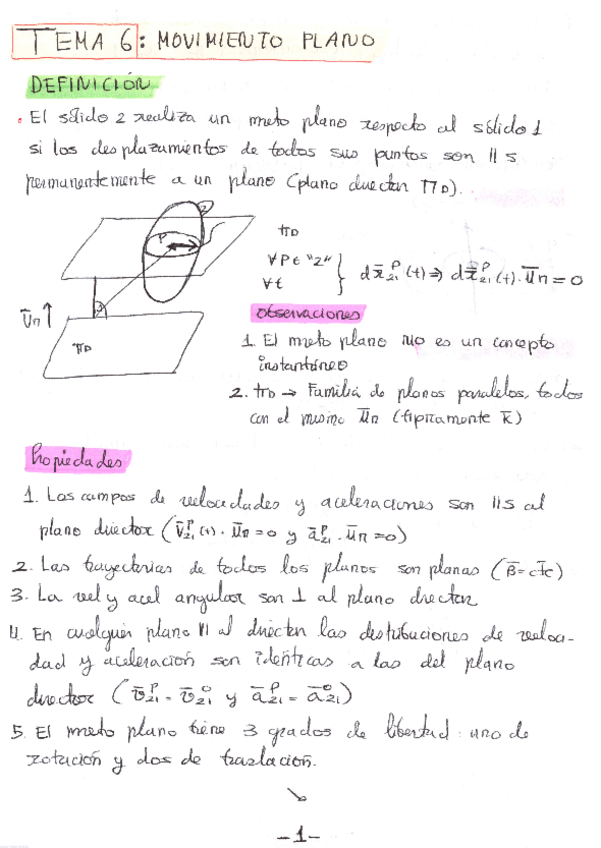 TEMA 6: MOVIMIENTO PLANO
DEFINICIÓN
• El sólido 2 realiza un mvto plano respecto al sólido 1
si los desplazamientos de todos sus puntos son ∥s
permanentemente a un plano (plano director ΠD).
2
P
πD
∀P∈ "2"
∀t
} dx̄₂₁ᴾ(t) ⇒ dx̄₂₁ᴾ(t)·ūn = 0
ūn ↑
πD
Observaciones
1. El mvto plano NO es un concepto
instantáneo
2. πD → Familia de planos paralelos, todos
con el mismo ūn (típicamente k̄)
Propiedades
1. Los campos de velocidades y aceleraciones son ∥s al
plano director (v̄₂₁ᴾ(t)·ūn = 0 y ā₂₁ᴾ·ūn = 0)
2. Las trayectorias de todos los planos son planas (B̄ = cte)
3. La vel y acel angular son ⊥ al plano director
4. En cualquier plano ∥ al director las distribuciones de veloci-
dad y aceleración son idénticas a las del plano
director (v̄₂₁ᴾ = v̄₂₁ᴼ y ā₂₁ᴾ = ā₂₁ᴼ)
5. El mvto plano tiene 3 grados de libertad: uno de
rotación y dos de traslación.
↘
-1-